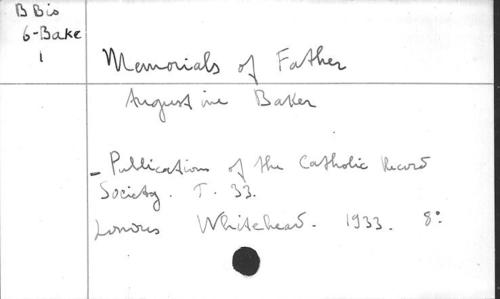 B Bio
6-Bake
1
Memorials of Father
Augustine Baker
- Publications of the Catholic Record
Society. T. 33.
Londres Whitehead. 1933. 8°